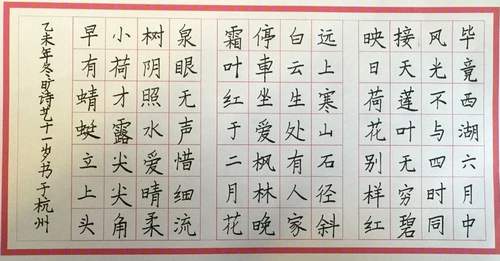 毕竟西湖六月中
风光不与四时同
接天莲叶无穷碧
映日荷花别样红
远上寒山石径斜
白云生处有人家
停車坐爱枫林晚
霜叶红于二月花
泉眼无声惜细流
树阴照水爱晴柔
小荷才露尖尖角
早有蜻蜓立上头
乙未年冬诗艺十一岁书于杭州